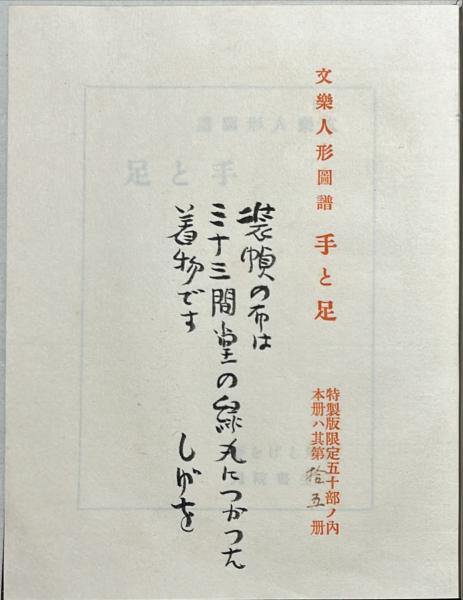 文樂人形圖譜 手と足
特製版限定五十部ノ內
本册ハ其第拾五册
装幀の布は
三十三間堂の緑丸につかつた
着物です
しげを